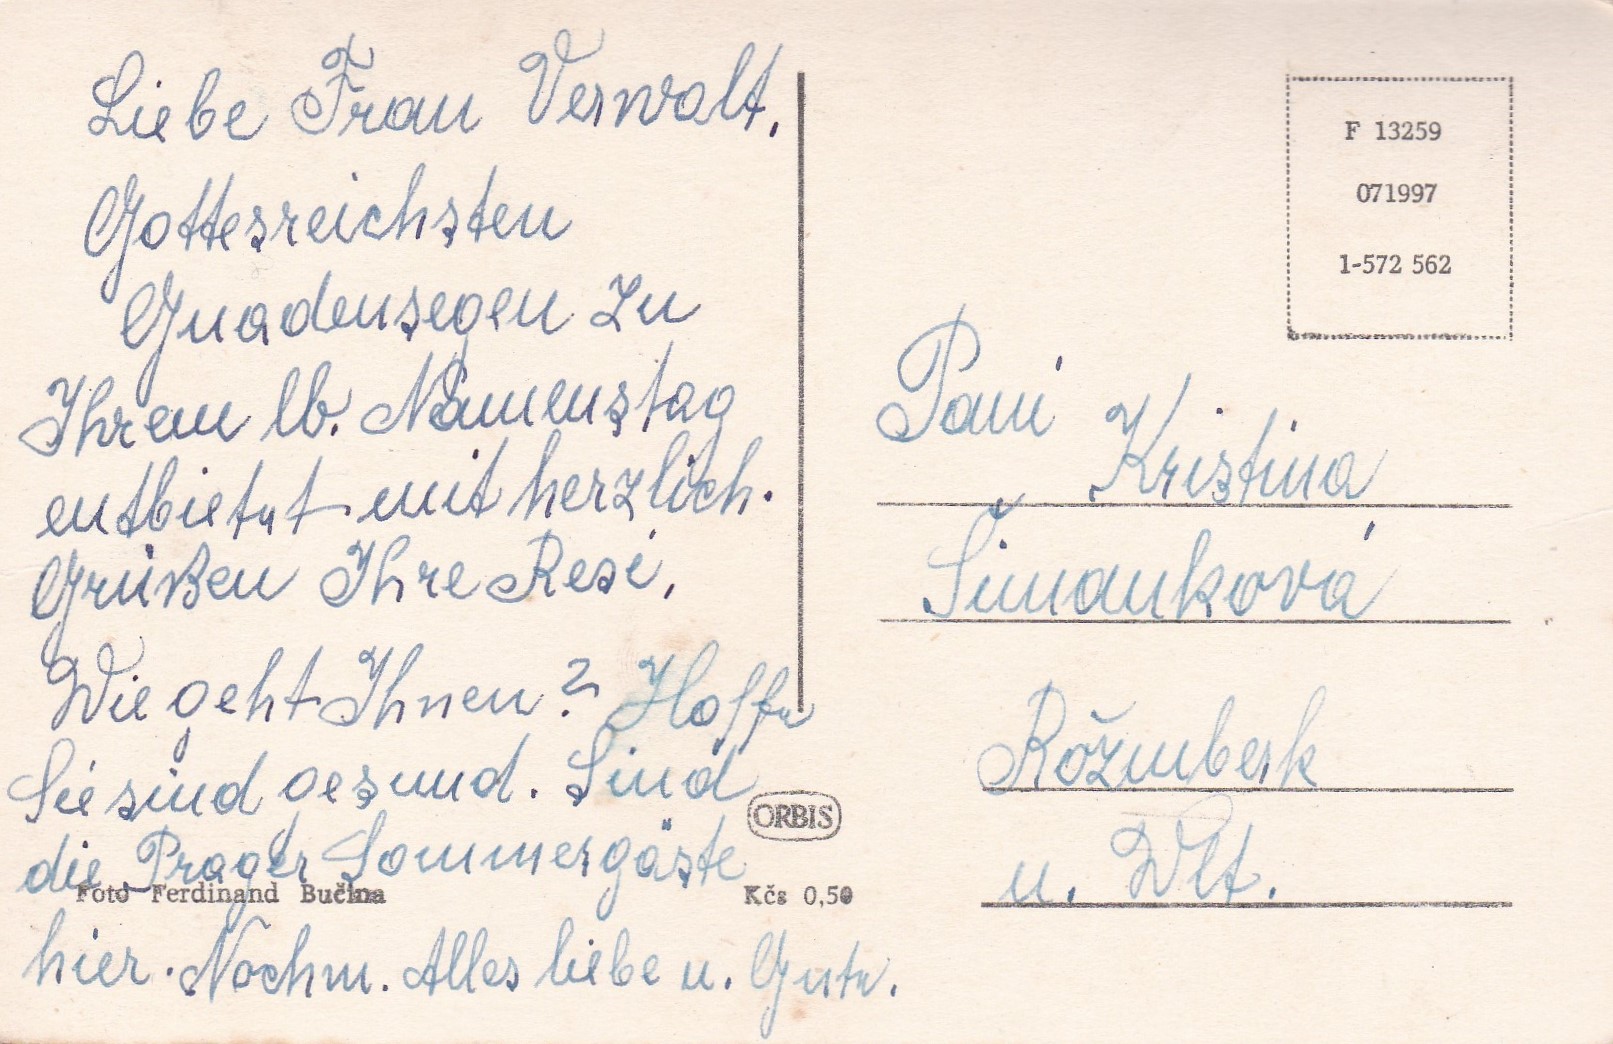 Liebe Frau Verwalt.
Gottesreichsten
Gnadensegen zu
Ihrem lb. Namenstag
entbietet mit herzlich.
Grüßen Ihre Resi.
Wie geht Ihnen? Hoffe
Sie sind gesund. Sind
die Prager Sommergäste
hier. Nochm. Alles liebe u. Gute.
Foto Ferdinand Bučina
ORBIS
Kčs 0,50
F 13259
071997
1-572 562
Pani Kristina
Šimanková
Rožmberk
u. Wlt.